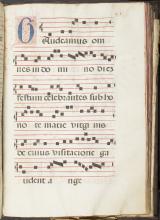 Gaudeamus om
nes in do mi no diez
festum celebrantes sub ho
no re marie virgi nis
de cuius visitacione ga
udent an ge